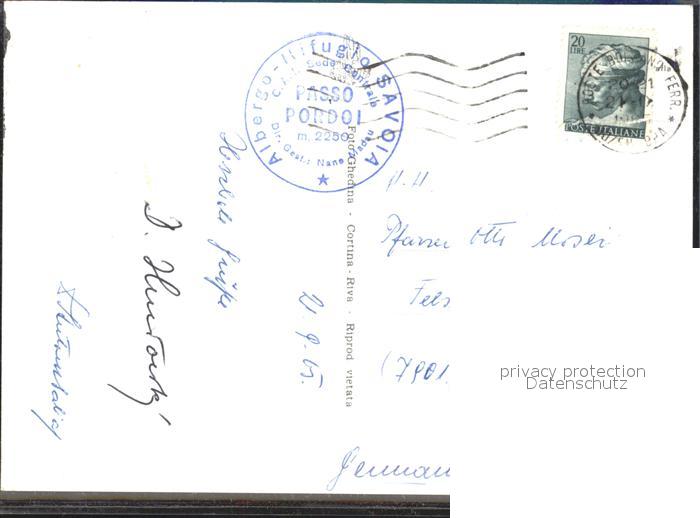 Albergo-Rifugio SAVOIA
C.A.I. Sede Centrale
PASSO
PORDOI
m. 2250
Dir. Gest.: Nane
20
LIRE
POSTE ITALIANE
FERR.
Herzliche Grüße
21.9.65.
Foto Ghedina - Cortina - Riva - Riprod vietata
H. H.
Pfarrer Otto Moser
Fels
(7901
German
privacy protection
Datenschutz